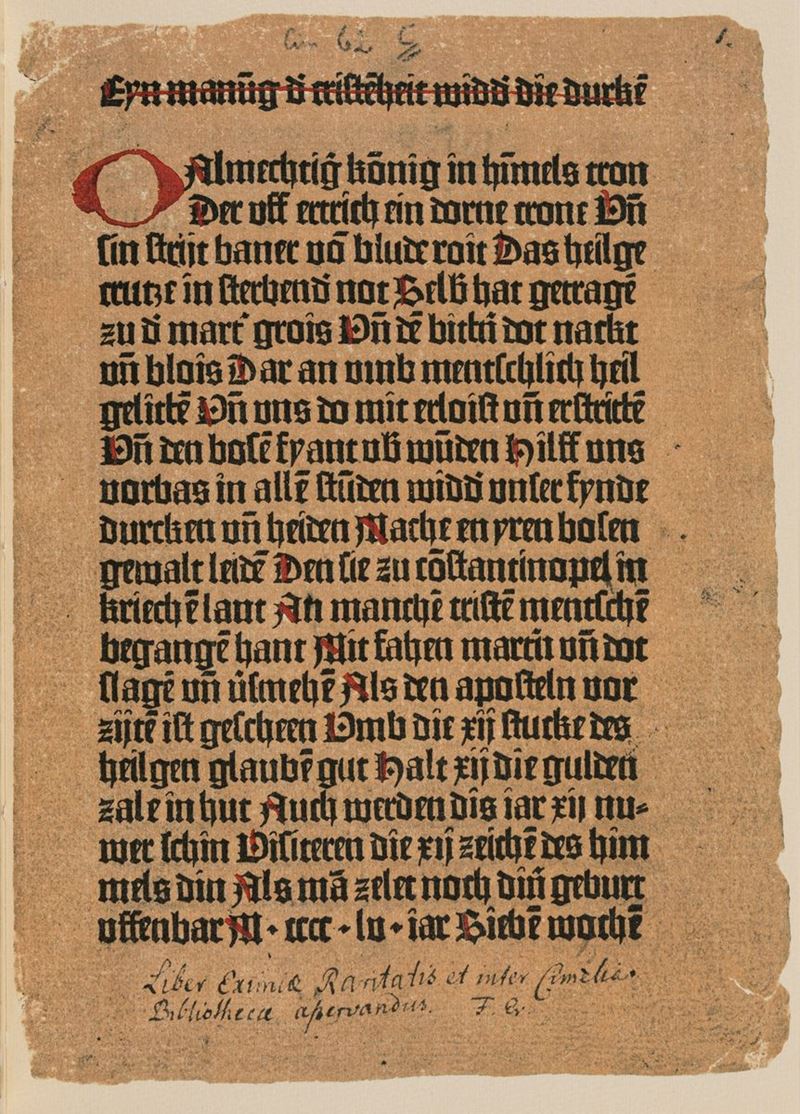 Cim 62 g
1.
Eyn manūg d̄ cristēheit widd̄ die durkē
O Almechtiḡ kōnig in hīmels tron
Der uff ertrich ein dorne crone Vn̄
sin strijt baner vō blude roit Das heilge
crutze in sterbend̄ not Selb̄ hat getragē
zu d̄ mart' grois Vn̄ dē bittn̄ dot nackt
vn̄ blois Dar an vmb mentschlich heil
gelittē Vn̄ uns do mit erloist vn̄ erstrittē
Vn̄ den bosē fyant vb̄ wūden Hilff uns
vorbas in allē stūden widd̄ unser fynde
durcken vn̄ heiden Mache en yren bosen
gewalt leidē Den sie zu cōstantinopel in
kriechē lant An manchē cristē mentschē
begangē hant Mit fahen martn̄ vn̄ dot
slagē vn̄ v̄smehē Als den aposteln vor
zijtē ist gescheen Vmb die xij stucke des
heilgen glaubē gut Halt xij die gulden
zale in hut Auch werden dis iar xij nu-
wer schin Visiteren die xij zeichē des him
mels din Als mā zelet noch din̄ geburt
uffenbar M · cccc · lv · iar Siebē wochē
Liber Eximiæ Raritatis et inter Cimelia
Bibliothecæ aservandus. F. G.